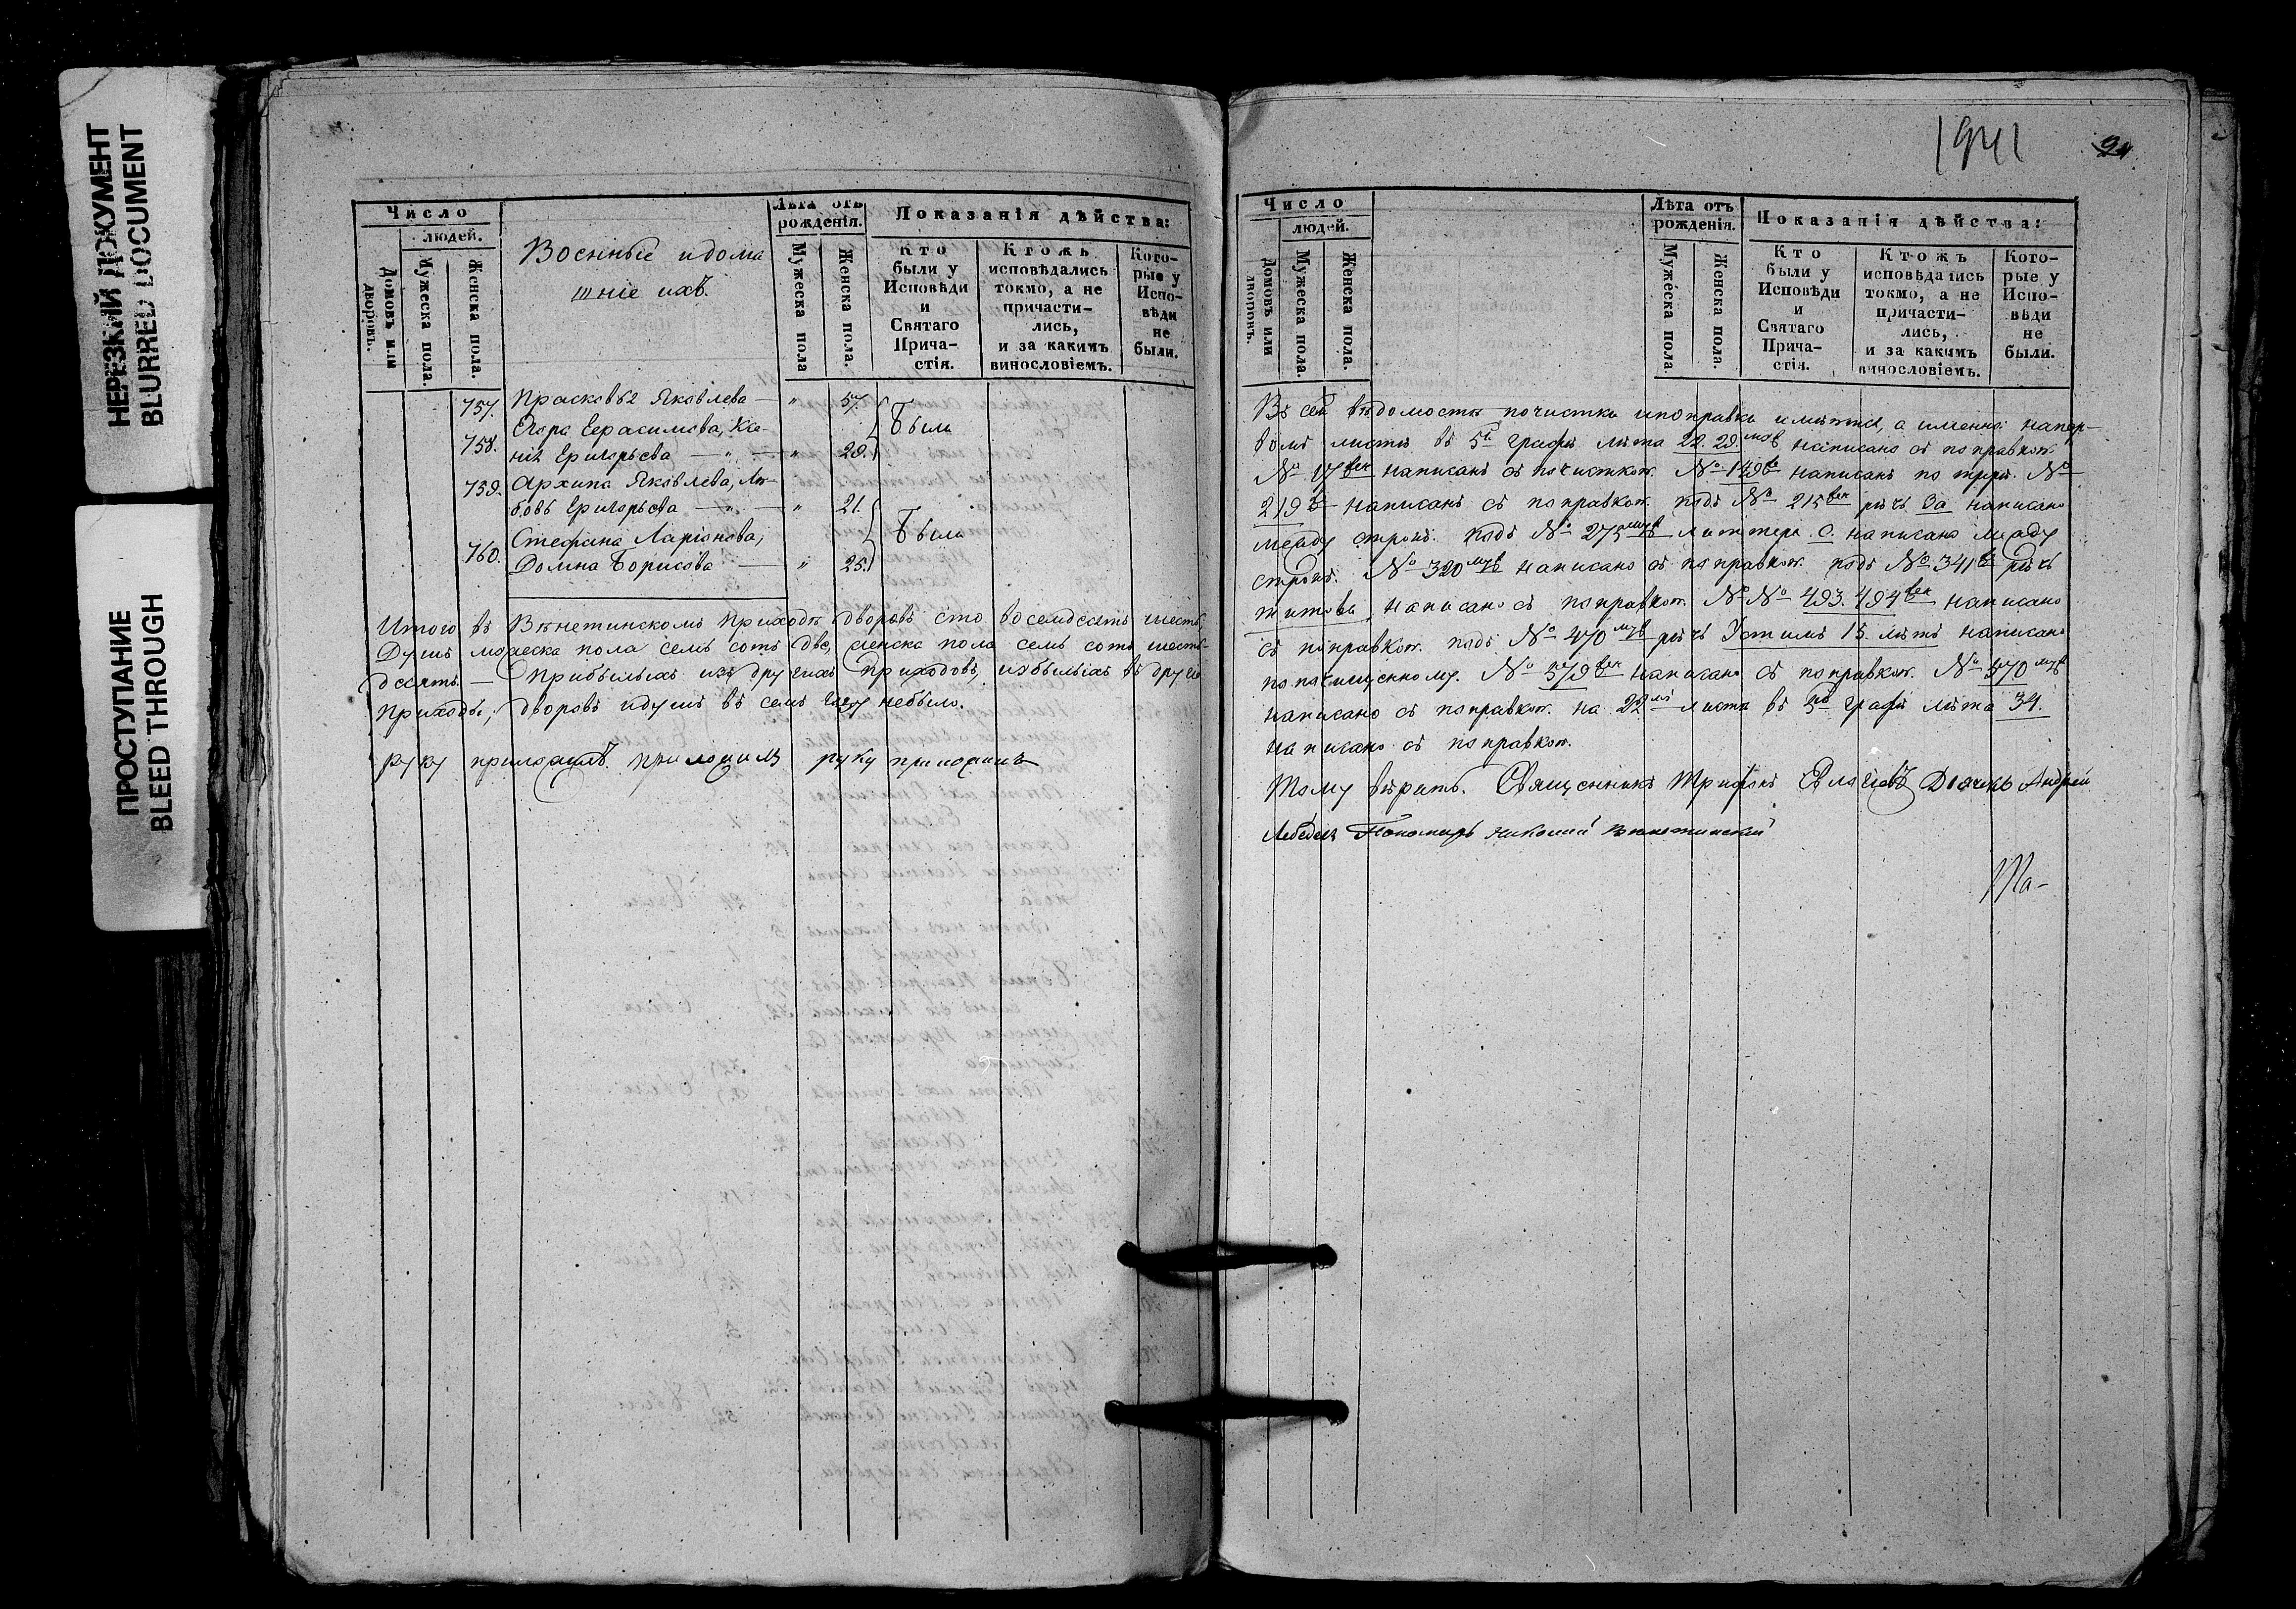 НЕРЕЗКИЙ ДОКУМЕНТ
BLURRED DOCUMENT
ПРОСТУПАНИЕ
BLEED THROUGH
Число
людей.
Домовъ или дворовъ.
Мужеска пола.
Женска пола.
Военные и дома
шніе ихъ.
Лѣта отъ
рожденія.
Мужеска пола
Женска пола.
Показанія дѣйства:
Кто
были у
Исповѣди
и
Святаго
Прича-
стія.
Ктожъ
исповѣдались
токмо, а не
причасти-
лись,
и за какимъ
винословіемъ.
Кото-
рые у
Испо-
вѣди
не
были.
757. Прасковья Яковлева — " 57.
Егора Герасимова, Ксе- Были
758. нія Григорьева — " — " 29.
759. Архипа Яковлева, Лю-
бовь Григорьева — " — " 21.
Стефана Ларіонова, Были
760. Домна Борисова — " 25.
Итого въ Вѣнетинскомъ приходѣ дворовъ сто восемдесятъ шесть,
Душъ мужеска пола семь сотъ две, женска пола семь сотъ шесть-
десятъ. — Прибылыхъ изъ другихъ приходовъ, и збылыхъ въ другіе
приходы, дворовъ и душъ въ семъ году небыло.
руку приложилъ. приложилъ руку приложилъ
1941
94
Число
людей.
Домовъ или дворовъ.
Мужеска пола.
Женска пола.
Лѣта отъ
рожденія.
Мужеска пола.
Женска пола.
Показанія дѣйства:
Кто
были у
Исповѣди
и
Святаго
Прича-
стія.
Ктожъ
исповѣдались
токмо, а не
причасти-
лись,
и за какимъ
винословіемъ.
Кото-
рые у
Испо-
вѣди
не
были.
Въ сей вѣдомости почистка и поправка имѣются, а именно: на пер-
вомъ листѣ въ 5й графѣ лѣта 22. 29. написано съ поправкою.
№ написанъ съ почисткою. № 149 написанъ по №
219 написанъ съ поправкою. подъ № 215 рѣчь За написано
между строкъ. подъ № 275 литтера о. написано между
строкъ. № 320 написано съ поправкою. подъ № 341 рѣчь
титова, написано съ поправкою. № № 493. 494 написано
съ поправкою. подъ № 470 рѣчь Устимъ 15. лѣтъ написано
по почищенному. № 579 написано съ поправкою. № 570
написано съ поправкою. на 22 листѣ въ графѣ лѣта 34.
написано съ поправкою.
Тому вѣрить. Священникъ Трифонъ Дьячекъ Андрей
Лебедевъ Пономарь Николай Вѣнетинскій
Та-